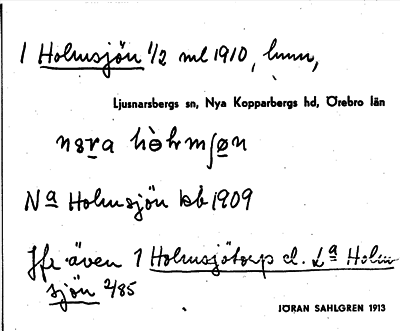 1 Holmsjön 1/2 ml 1910, hmn,
Ljusnarsbergs sn, Nya Kopparbergs hd, Örebro län
Na Holmsjön kb 1909
Jfr även 1 Holmsjötorp d. La Holm
sjön 2/85
JÖRAN SAHLGREN 1913